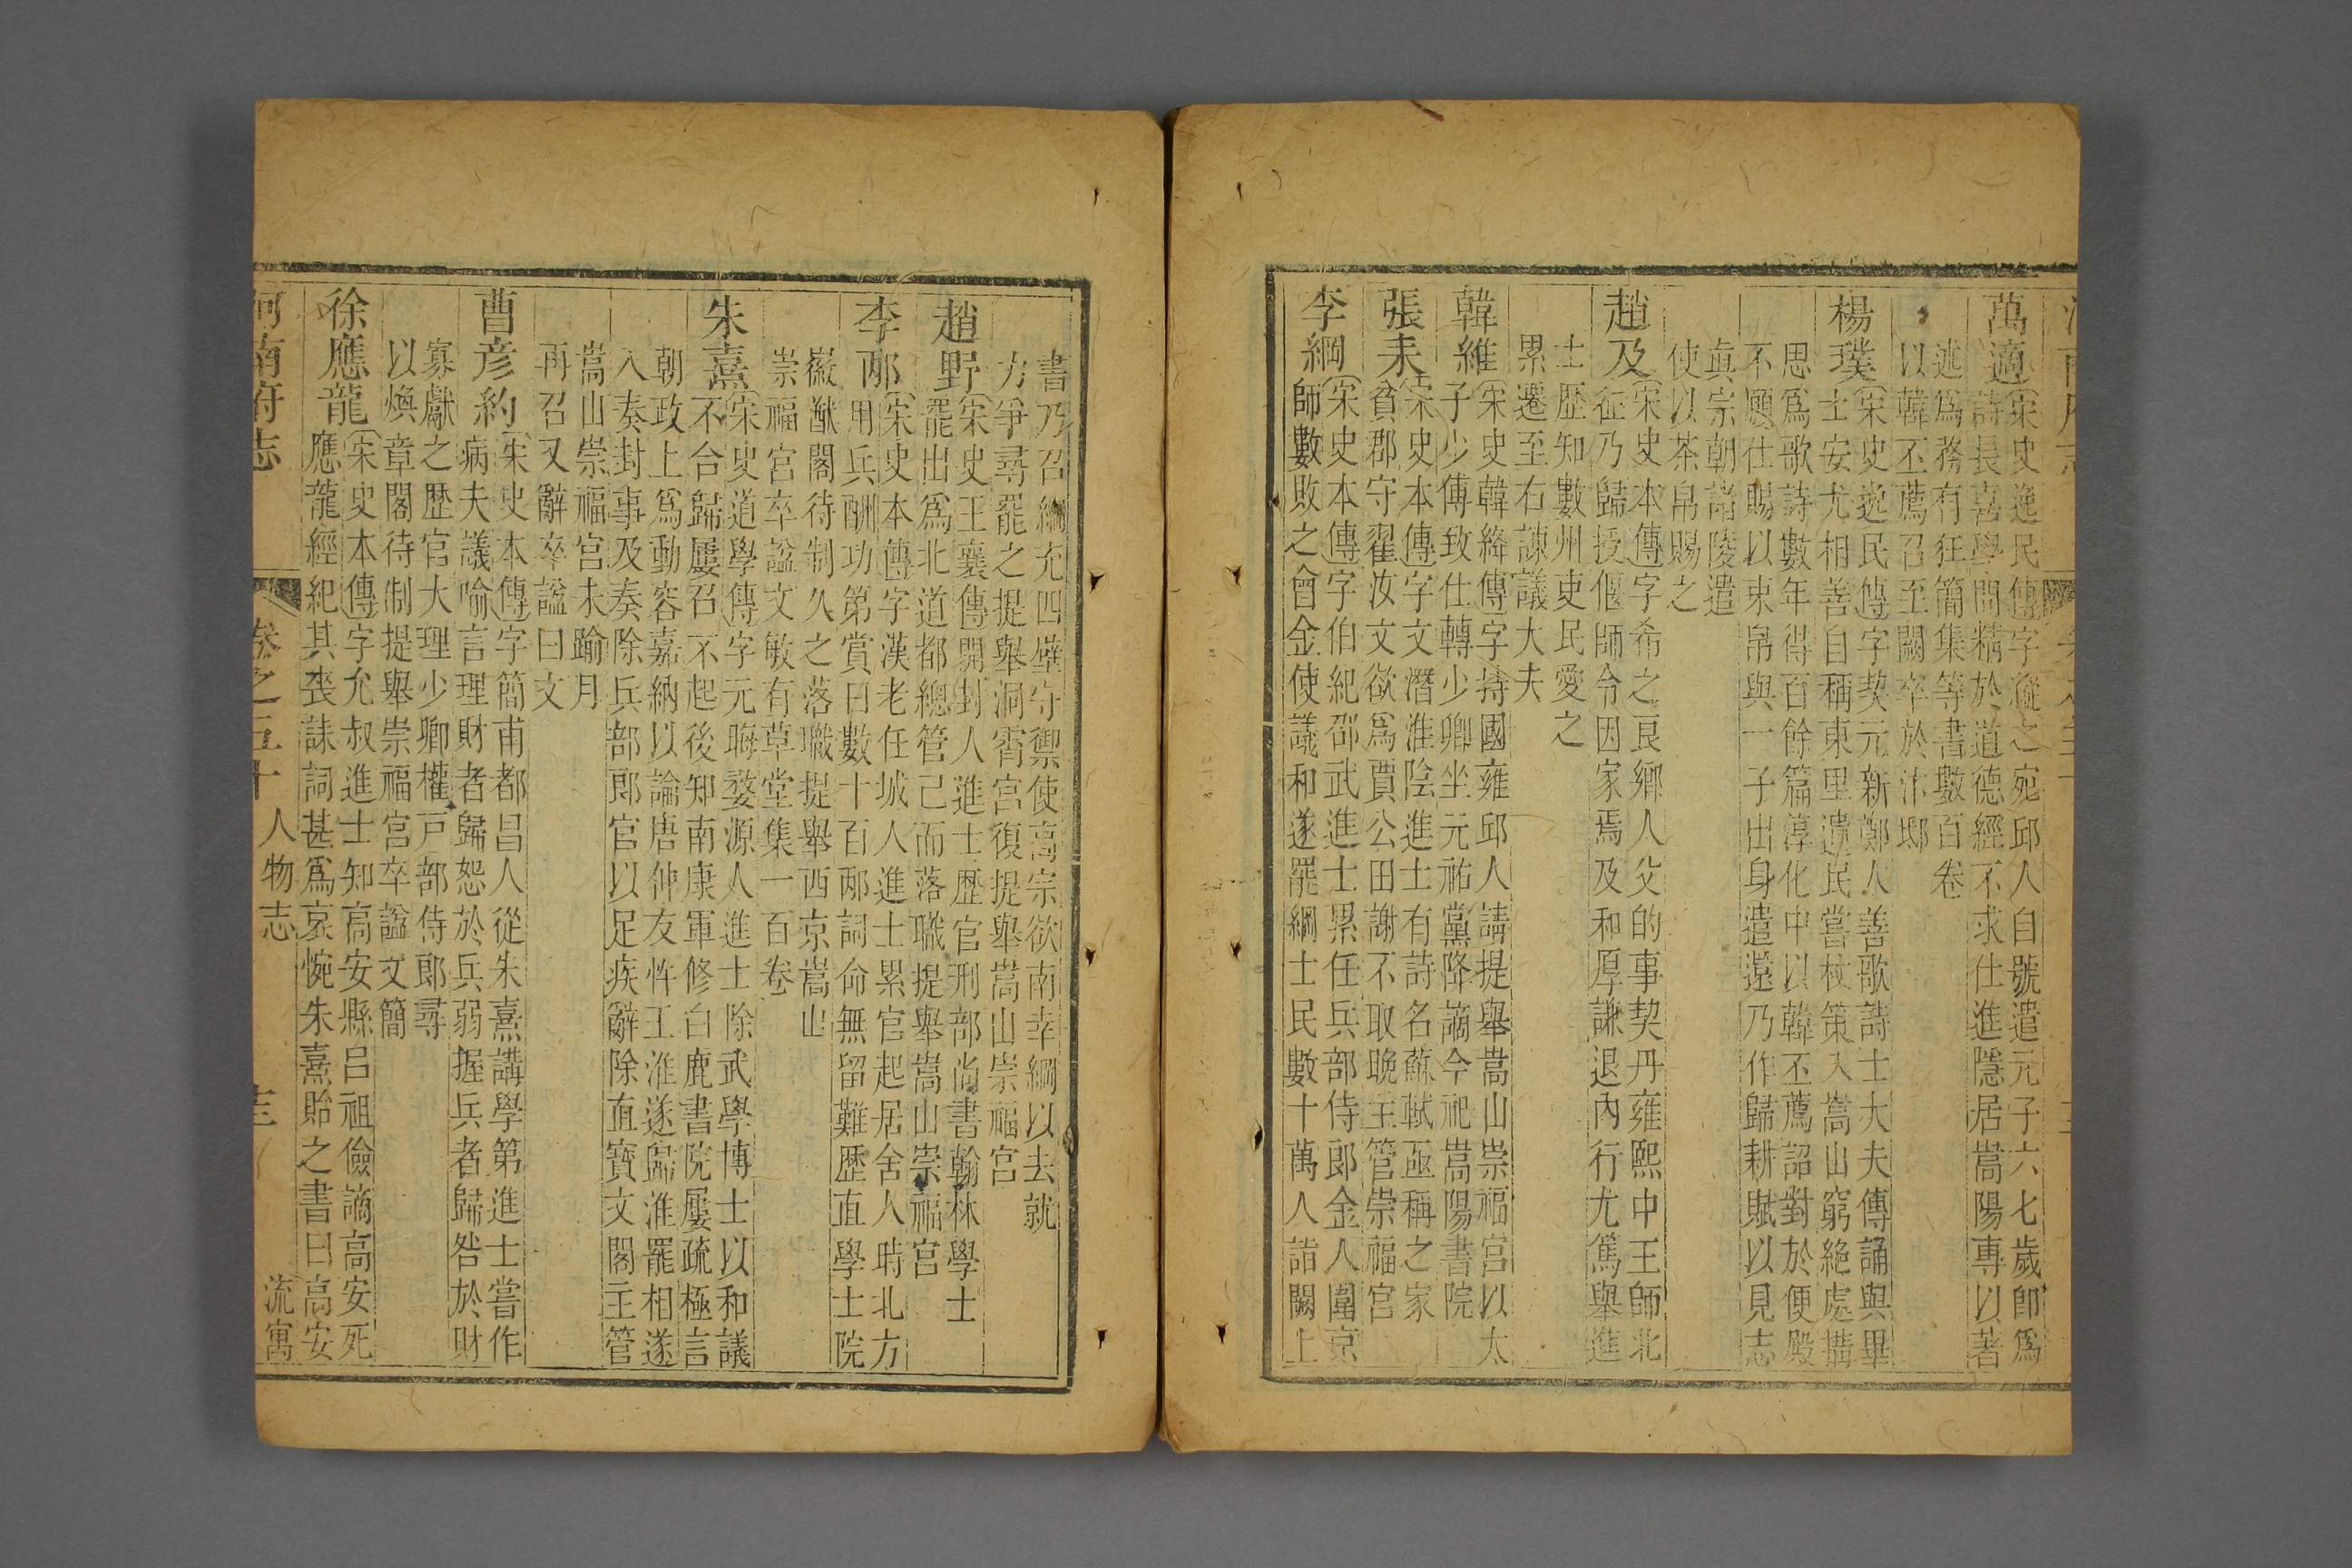 萬適
宋史逸民傳字縱之宛邱人自號遣元子六七歲卽爲
詩長喜學問精於道德經不求仕進隱居嵩陽專以著
述爲務有狂簡集等書數百卷
以韓丕薦召至闕卒於汴邸
楊璞
宋史逸民傳字契元新鄭人善歌詩士大夫傳誦與畢
士安尤相善自稱東里遺民嘗杖策入嵩山窮絶處搆
思爲歌詩數年得百餘篇淳化中以韓丕薦詔對於便殿
不願仕賜以束帛與一子出身遣還乃作歸耕賦以見志
眞宗朝諸陵遣
使以茶帛賜之
趙及
宋史本傳字希之良鄉人父的事契丹雍熙中王師北
征乃歸授偃師令因家焉及和厚謙退內行尤篤舉進
士歷知數州吏民愛之
累遷至右諫議大夫
韓維
宋史韓絳傳字持國雍邱人請提舉嵩山崇福宮以太
子少傅致仕轉少卿坐元祐黨降謫今祀嵩陽書院
張耒
宋史本傳字文潛淮陰進士有詩名蘇軾亟稱之家
貧郡守翟汝文欲爲買公田謝不取晚主管崇福宮
李綱
宋史本傳字伯紀邵武進士累任兵部侍郎金人圍京
師數敗之會金使議和遂罷綱士民數十萬人詣闕上
書乃召綱充四壁守禦使高宗欲南幸綱以去就
力爭尋罷之提舉洞霄宮復提舉嵩山崇福宮
趙野
宋史王襄傳開封人進士歷官刑部尚書翰林學士
罷出爲北道都總管已而落職提舉嵩山崇福宮
李邴
宋史本傳字漢老任城人進士累官起居舍人時北方
用兵酬功第賞日數十百邴詞命無留難歷直學士院
徽猷閣待制久之落職提舉西京嵩山
崇福宮卒諡文敏有草堂集一百卷
朱熹
宋史道學傳字元晦婺源人進士除武學博士以和議
不合歸屢召不起後知南康軍修白鹿書院屢疏極言
朝政上爲動容嘉納以論唐仲友忤王淮遂歸淮罷相遂
入奏封事及奏除兵部郎官以足疾辭除直寶文閣主管
嵩山崇福宮未踰月
再召又辭卒諡曰文
曹彦約
宋史本傳字簡甫都昌人從朱熹講學第進士嘗作
病夫議喻言理財者歸恕於兵弱握兵者歸咎於財
寡獻之歷官大理少卿權戸部侍郎尋
以煥章閣待制提舉崇福宮卒諡文簡
徐應龍
宋史本傳字允叔進士知高安縣呂祖儉謫高安死
應龍經紀其喪誄詞甚爲哀惋朱熹貽之書曰高安
河南府志
卷之五十
人物志
流寓